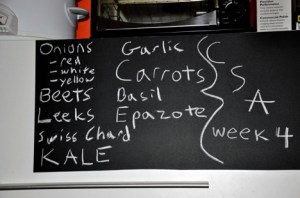 Onions
- red
- white
- yellow
Beets
Leeks
Swiss Chard
KALE
Garlic
Carrots
Basil
Epazote
CSA
week 4